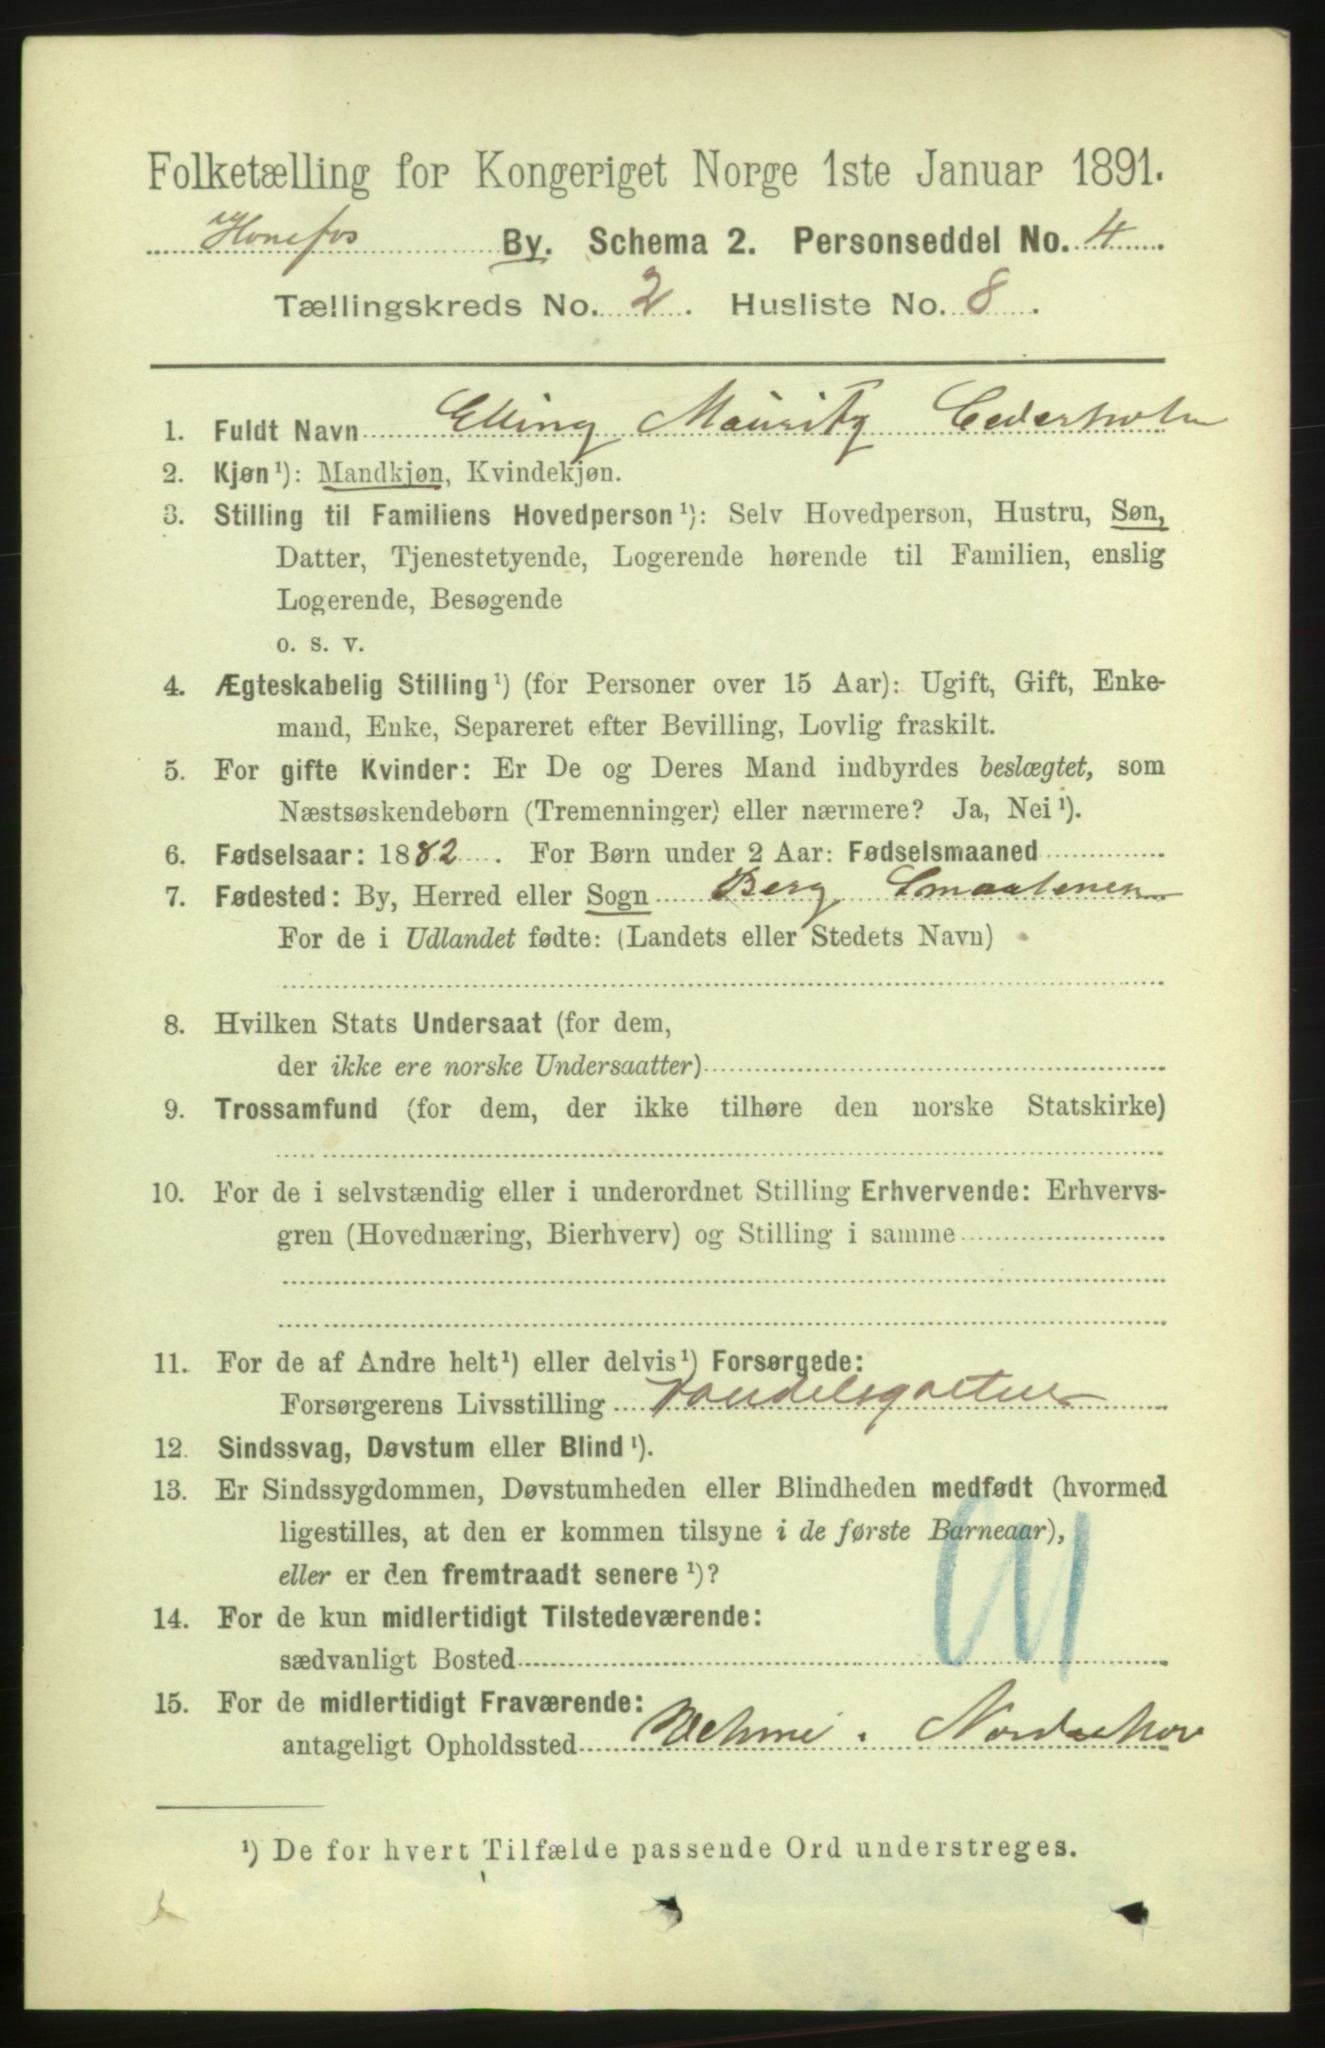 Folketælling for Kongeriget Norge 1ste Januar 1891.
Hønefos By. Schema 2. Personseddel No. 4.
Tællingskreds No. 2. Husliste No. 8.
1. Fuldt Navn Elling Mauritz Cederholm
2. Kjøn¹): Mandkjøn, Kvindekjøn.
3. Stilling til Familiens Hovedperson¹): Selv Hovedperson, Hustru, Søn,
Datter, Tjenestetyende, Logerende hørende til Familien, enslig
Logerende, Besøgende
o. s. v.
4. Ægteskabelig Stilling¹) (for Personer over 15 Aar): Ugift, Gift, Enke-
mand, Enke, Separeret efter Bevilling, Lovlig fraskilt.
5. For gifte Kvinder: Er De og Deres Mand indbyrdes beslægtet, som
Næstsøskendebørn (Tremenninger) eller nærmere? Ja, Nei¹).
6. Fødselsaar: 1882. For Børn under 2 Aar: Fødselsmaaned
7. Fødested: By, Herred eller Sogn Berg Smaalenene
For de i Udlandet fødte: (Landets eller Stedets Navn)
8. Hvilken Stats Undersaat (for dem,
der ikke ere norske Undersaatter)
9. Trossamfund (for dem, der ikke tilhøre den norske Statskirke)
10. For de i selvstændig eller i underordnet Stilling Erhvervende: Erhvervs-
gren (Hovednæring, Bierhverv) og Stilling i samme
11. For de af Andre helt¹) eller delvis¹) Forsørgede:
Forsørgerens Livsstilling Handelsgartner
12. Sindssvag, Døvstum eller Blind¹).
13. Er Sindssygdommen, Døvstumheden eller Blindheden medfødt (hvormed
ligestilles, at den er kommen tilsyne i de første Barneaar),
eller er den fremtraadt senere¹)?
14. For de kun midlertidigt Tilstedeværende:
sædvanligt Bosted
15. For de midlertidigt Fraværende:
antageligt Opholdssted Vehme. Norderhov
¹) De for hvert Tilfælde passende Ord understreges.